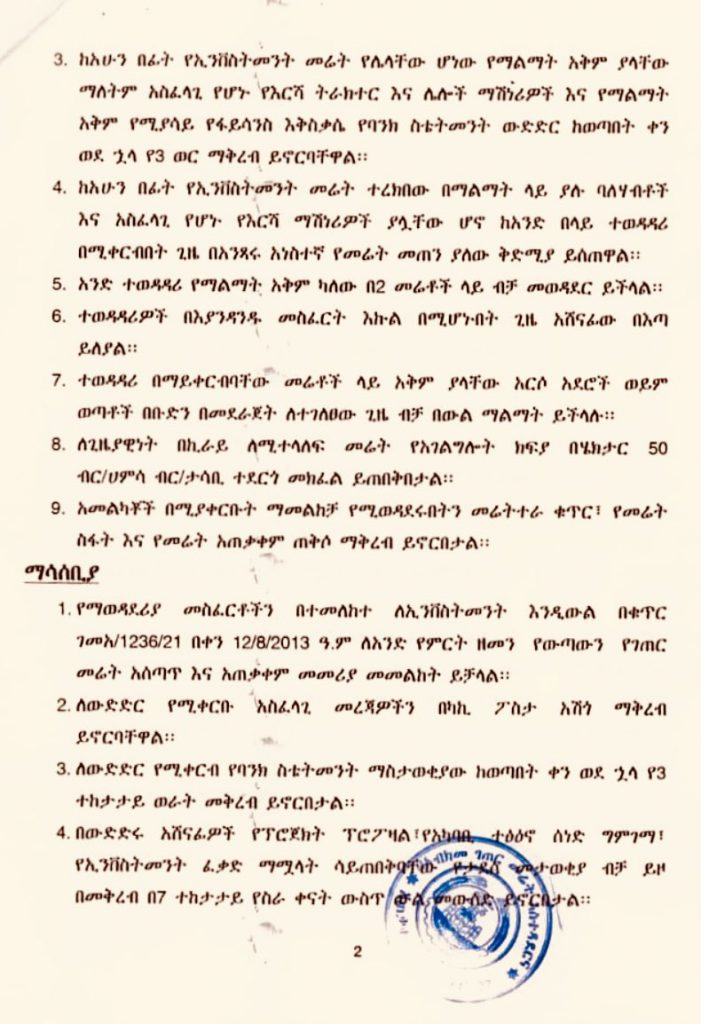 3. ከአሁን በፊት የኢንቨስትመንት መሬት የሌላቸው ሆነው የማልማት አቅም ያላቸው
ማለትም አስፈላጊ የሆኑ የእርሻ ትራክተር እና ሌሎች ማሽነሪዎች እና የማልማት
አቅም የሚያሳይ የፋይሳንስ እቅስቃሴ የባንክ ስቴትመንት ውድድር ከወጣበት ቀን
ወደ ኋላ የ3 ወር ማቅረብ ይኖርባቸዋል፡፡
4. ከአሁን በፊት የኢንቨስትመንት መሬት ተረክበው በማልማት ላይ ያሉ ባለሃብቶች
እና አስፈላጊ የሆኑ የእርሻ ማሽነሪዎች ያሏቸው ሆኖ ከአንድ በላይ ተወዳዳሪ
በሚቀርብበት ጊዜ በአንጻሩ አነስተኛ የመሬት መጠን ያለው ቅድሚያ ይሰጠዋል፡፡
5. አንድ ተወዳዳሪ የማልማት አቅም ካለው በ2 መሬቶች ላይ ብቻ መወዳደር ይችላል፡፡
6. ተወዳዳሪዎች በእያንዳንዱ መስፈርት እኩል በሚሆኑበት ጊዜ አሸናፊው በእጣ
ይለያል፡፡
7. ተወዳዳሪ በማይቀርብባቸው መሬቶች ላይ አቅም ያላቸው አርሶ አደሮች ወይም
ወጣቶች በቡድን በመደራጀት ለተገለፀው ጊዜ ብቻ በውል ማልማት ይችላሉ፡፡
8. ለጊዜያዊነት በኪራይ ለሚተላለፍ መሬት የአገልግሎት ክፍያ በሄክታር 50
ብር/ሀምሳ ብር/ታሳቢ ተደርጎ መክፈል ይጠበቅበታል፡፡
9. አመልካቾች በሚያቀርቡት ማመልከቻ የሚወዳደሩበትን መሬትተራ ቁጥር፣ የመሬት
ስፋት እና የመሬት አጠቃቀም ጠቅሶ ማቅረብ ይኖርበታል፡፡
ማሳሰቢያ
1. የማወዳደሪያ መስፈርቶችን በተመለከተ ለኢንቨስትመንት እንዲውል በቁጥር
ገመአ/1236/21 በቀን 12/8/2013 ዓ.ም ለአንድ የምርት ዘመን የውጣውን የገጠር
መሬት አሰጣጥ እና አጠቃቀም መመሪያ መመልከት ይቻላል፡፡
2. ለውድድር የሚቀርቡ አስፈላጊ መረጃዎችን በካኪ ፖስታ አሽጎ ማቅረብ
ይኖርባቸዋል፡፡
3. ለውድድር የሚቀርብ የባንክ ስቴትመንት ማስታወቂያው ከወጣበት ቀን ወደ ኋላ የ3
ተከታታይ ወራት መቅረብ ይኖርበታል፡፡
4. በውድድሩ አሸናፊዎች የፕሮጀክት ፕሮፖዛል፣የአካባቢ ተፅዕኖ ሰነድ ግምገማ፣
የኢንቨስትመንት ፈቃድ ማሟላት ሳይጠበቅባቸው የታደሰ መታወቂያ ብቻ ይዞ
በመቅረብ በ7 ተከታታይ የስራ ቀናት ውስጥ ውል መውሰድ ይኖርበታል፡፡
2